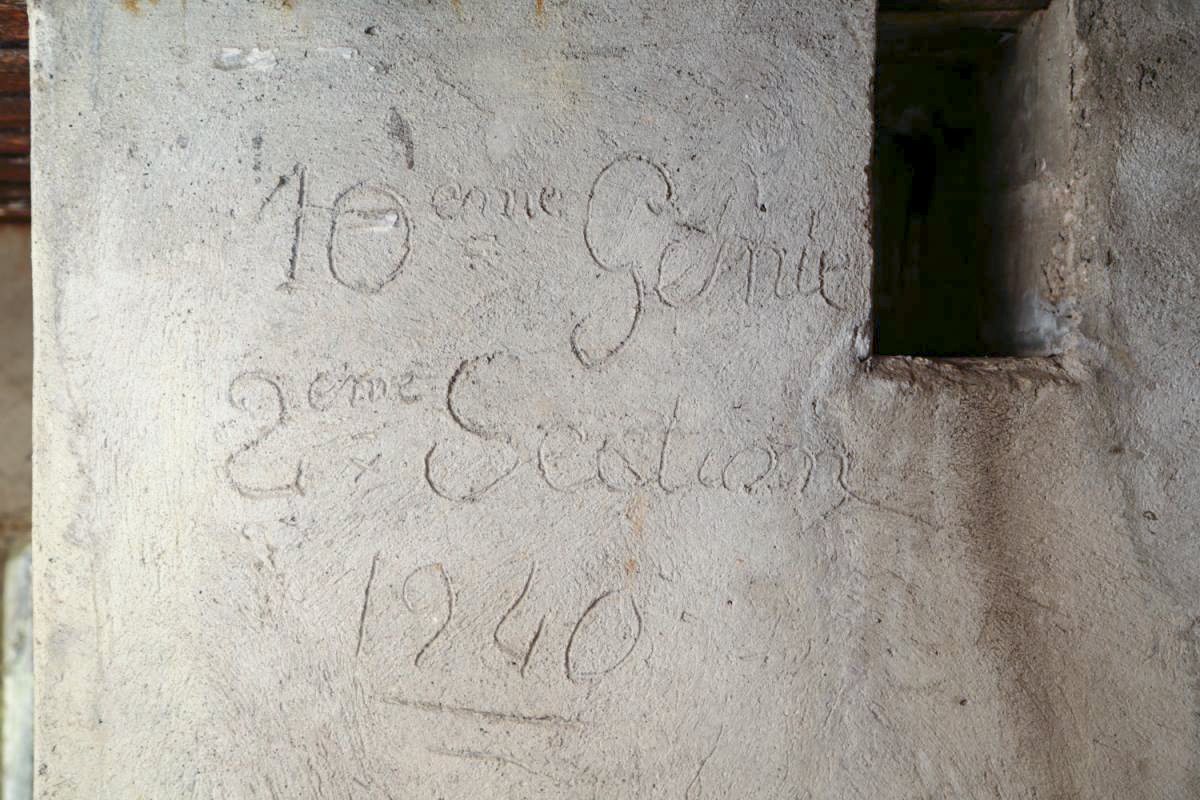 10ème Génie
2ème Section
1940